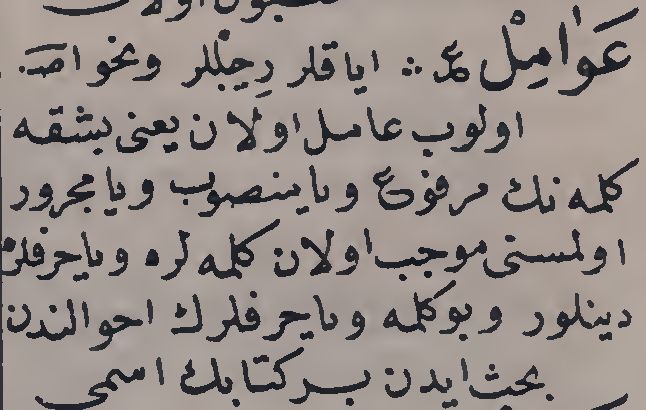 عَوَامِلْ ع ؞ اياقلر رِجِللر و نحوا صـ
اولوب عامل اولان يعنى بشقه
كلمه نك مرفوع ويا منصوب ويا مجرور
اولمسنى موجب اولان كلمه لره ويا حرفلره
دينلور و بو كلمه ويا حرفلرك احوالندن
بحث ايدن بر كتابك اسمى